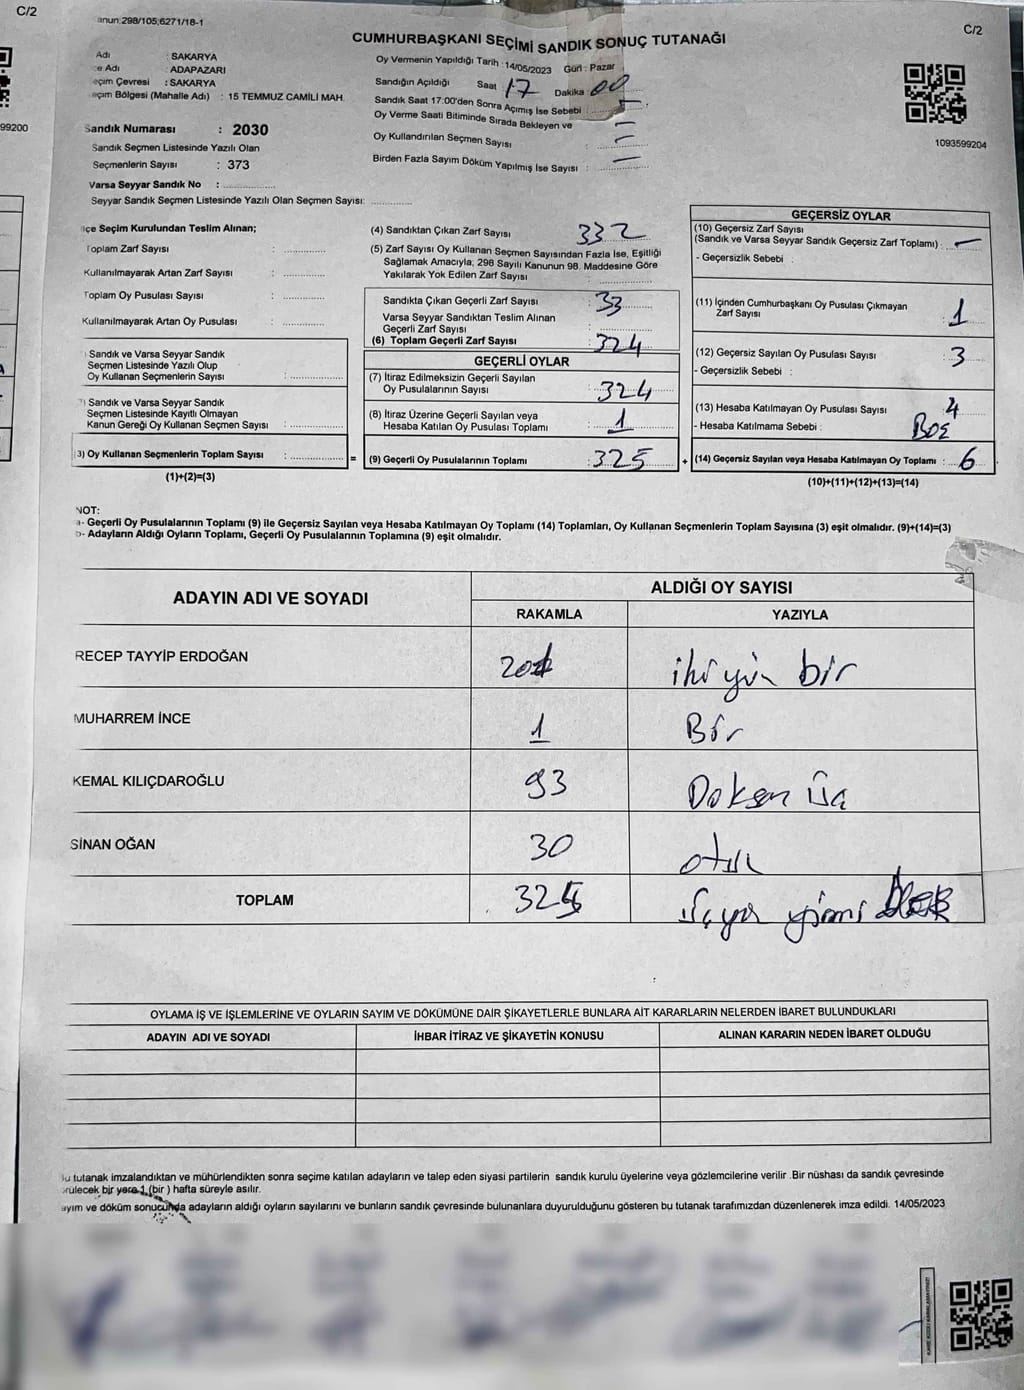 C/2
anun:298/105;6271/18-1
C/2
CUMHURBAŞKANI SEÇİMİ SANDIK SONUÇ TUTANAĞI
Adı : SAKARYA
e Adı : ADAPAZARI
eçim Çevresi : SAKARYA
eçim Bölgesi (Mahalle Adı) : 15 TEMMUZ CAMİLİ MAH.
Oy Vermenin Yapıldığı Tarih : 14/05/2023 Gün : Pazar
Sandığın Açıldığı Saat 17 Dakika 00
Sandık Saat 17:00'den Sonra Açımış İse Sebebi : -
Oy Verme Saati Bitiminde Sırada Bekleyen ve
Oy Kullandırılan Seçmen Sayısı : -
Birden Fazla Sayım Döküm Yapılmış İse Sayısı : -
1093599204
99200
Sandık Numarası : 2030
Sandık Seçmen Listesinde Yazılı Olan
Seçmenlerin Sayısı : 373
Varsa Seyyar Sandık No : ..............
Seyyar Sandık Seçmen Listesinde Yazılı Olan Seçmen Sayısı: ............
lçe Seçim Kurulundan Teslim Alınan;
Toplam Zarf Sayısı : ............
Kullanılmayarak Artan Zarf Sayısı : ............
Toplam Oy Pusulası Sayısı : ............
Kullanılmayarak Artan Oy Pusulası : ............
) Sandık ve Varsa Seyyar Sandık
Seçmen Listesinde Yazılı Olup
Oy Kullanan Seçmenlerin Sayısı : ............
) Sandık ve Varsa Seyyar Sandık
Seçmen Listesinde Kayıtlı Olmayan
Kanun Gereği Oy Kullanan Seçmen Sayısı : ............
3) Oy Kullanan Seçmenlerin Toplam Sayısı : ............ =
(1)+(2)=(3)
(4) Sandıktan Çıkan Zarf Sayısı 332
(5) Zarf Sayısı Oy Kullanan Seçmen Sayısından Fazla İse, Eşitliği
Sağlamak Amacıyla; 298 Sayılı Kanunun 98. Maddesine Göre
Yakılarak Yok Edilen Zarf Sayısı
Sandıkta Çıkan Geçerli Zarf Sayısı : 33
Varsa Seyyar Sandıktan Teslim Alınan
Geçerli Zarf Sayısı
(6) Toplam Geçerli Zarf Sayısı : 324
GEÇERLİ OYLAR
(7) İtiraz Edilmeksizin Geçerli Sayılan
Oy Pusulalarının Sayısı : 324
(8) İtiraz Üzerine Geçerli Sayılan veya
Hesaba Katılan Oy Pusulası Toplamı : 1
(9) Geçerli Oy Pusulalarının Toplamı : 325 +
GEÇERSİZ OYLAR
(10) Geçersiz Zarf Sayısı
(Sandık ve Varsa Seyyar Sandık Geçersiz Zarf Toplamı) : -
- Geçersizlik Sebebi :
(11) İçinden Cumhurbaşkanı Oy Pusulası Çıkmayan
Zarf Sayısı 1
(12) Geçersiz Sayılan Oy Pusulası Sayısı : 3
- Geçersizlik Sebebi :
(13) Hesaba Katılmayan Oy Pusulası Sayısı : 4
- Hesaba Katılmama Sebebi : Boş
(14) Geçersiz Sayılan veya Hesaba Katılmayan Oy Toplamı : 6
(10)+(11)+(12)+(13)=(14)
NOT:
a- Geçerli Oy Pusulalarının Toplamı (9) ile Geçersiz Sayılan veya Hesaba Katılmayan Oy Toplamı (14) Toplamları, Oy Kullanan Seçmenlerin Toplam Sayısına (3) eşit olmalıdır. (9)+(14)=(3)
b- Adayların Aldığı Oyların Toplamı, Geçerli Oy Pusulalarının Toplamına (9) eşit olmalıdır.
ADAYIN ADI VE SOYADI
ALDIĞI OY SAYISI
RAKAMLA YAZIYLA
RECEP TAYYİP ERDOĞAN 201 ikiyüz bir
MUHARREM İNCE 1 Bir
KEMAL KILIÇDAROĞLU 93 Doksan üç
SİNAN OĞAN 30 otuz
TOPLAM 325 üçyüz yirmi
OYLAMA İŞ VE İŞLEMLERİNE VE OYLARIN SAYIM VE DÖKÜMÜNE DAİR ŞİKAYETLERLE BUNLARA AİT KARARLARIN NELERDEN İBARET BULUNDUKLARI
ADAYIN ADI VE SOYADI İHBAR İTİRAZ VE ŞİKAYETİN KONUSU ALINAN KARARIN NEDEN İBARET OLDUĞU
u tutanak imzalandıktan ve mühürlendikten sonra seçime katılan adayların ve talep eden siyasi partilerin sandık kurulu üyelerine veya gözlemcilerine verilir .Bir nüshası da sandık çevresinde
rülecek bir yere 1 (bir ) hafta süreyle asılır.
ayım ve döküm sonucunda adayların aldığı oyların sayılarını ve bunların sandık çevresinde bulunanlara duyurulduğunu gösteren bu tutanak tarafımızdan düzenlenerek imza edildi. 14/05/2023